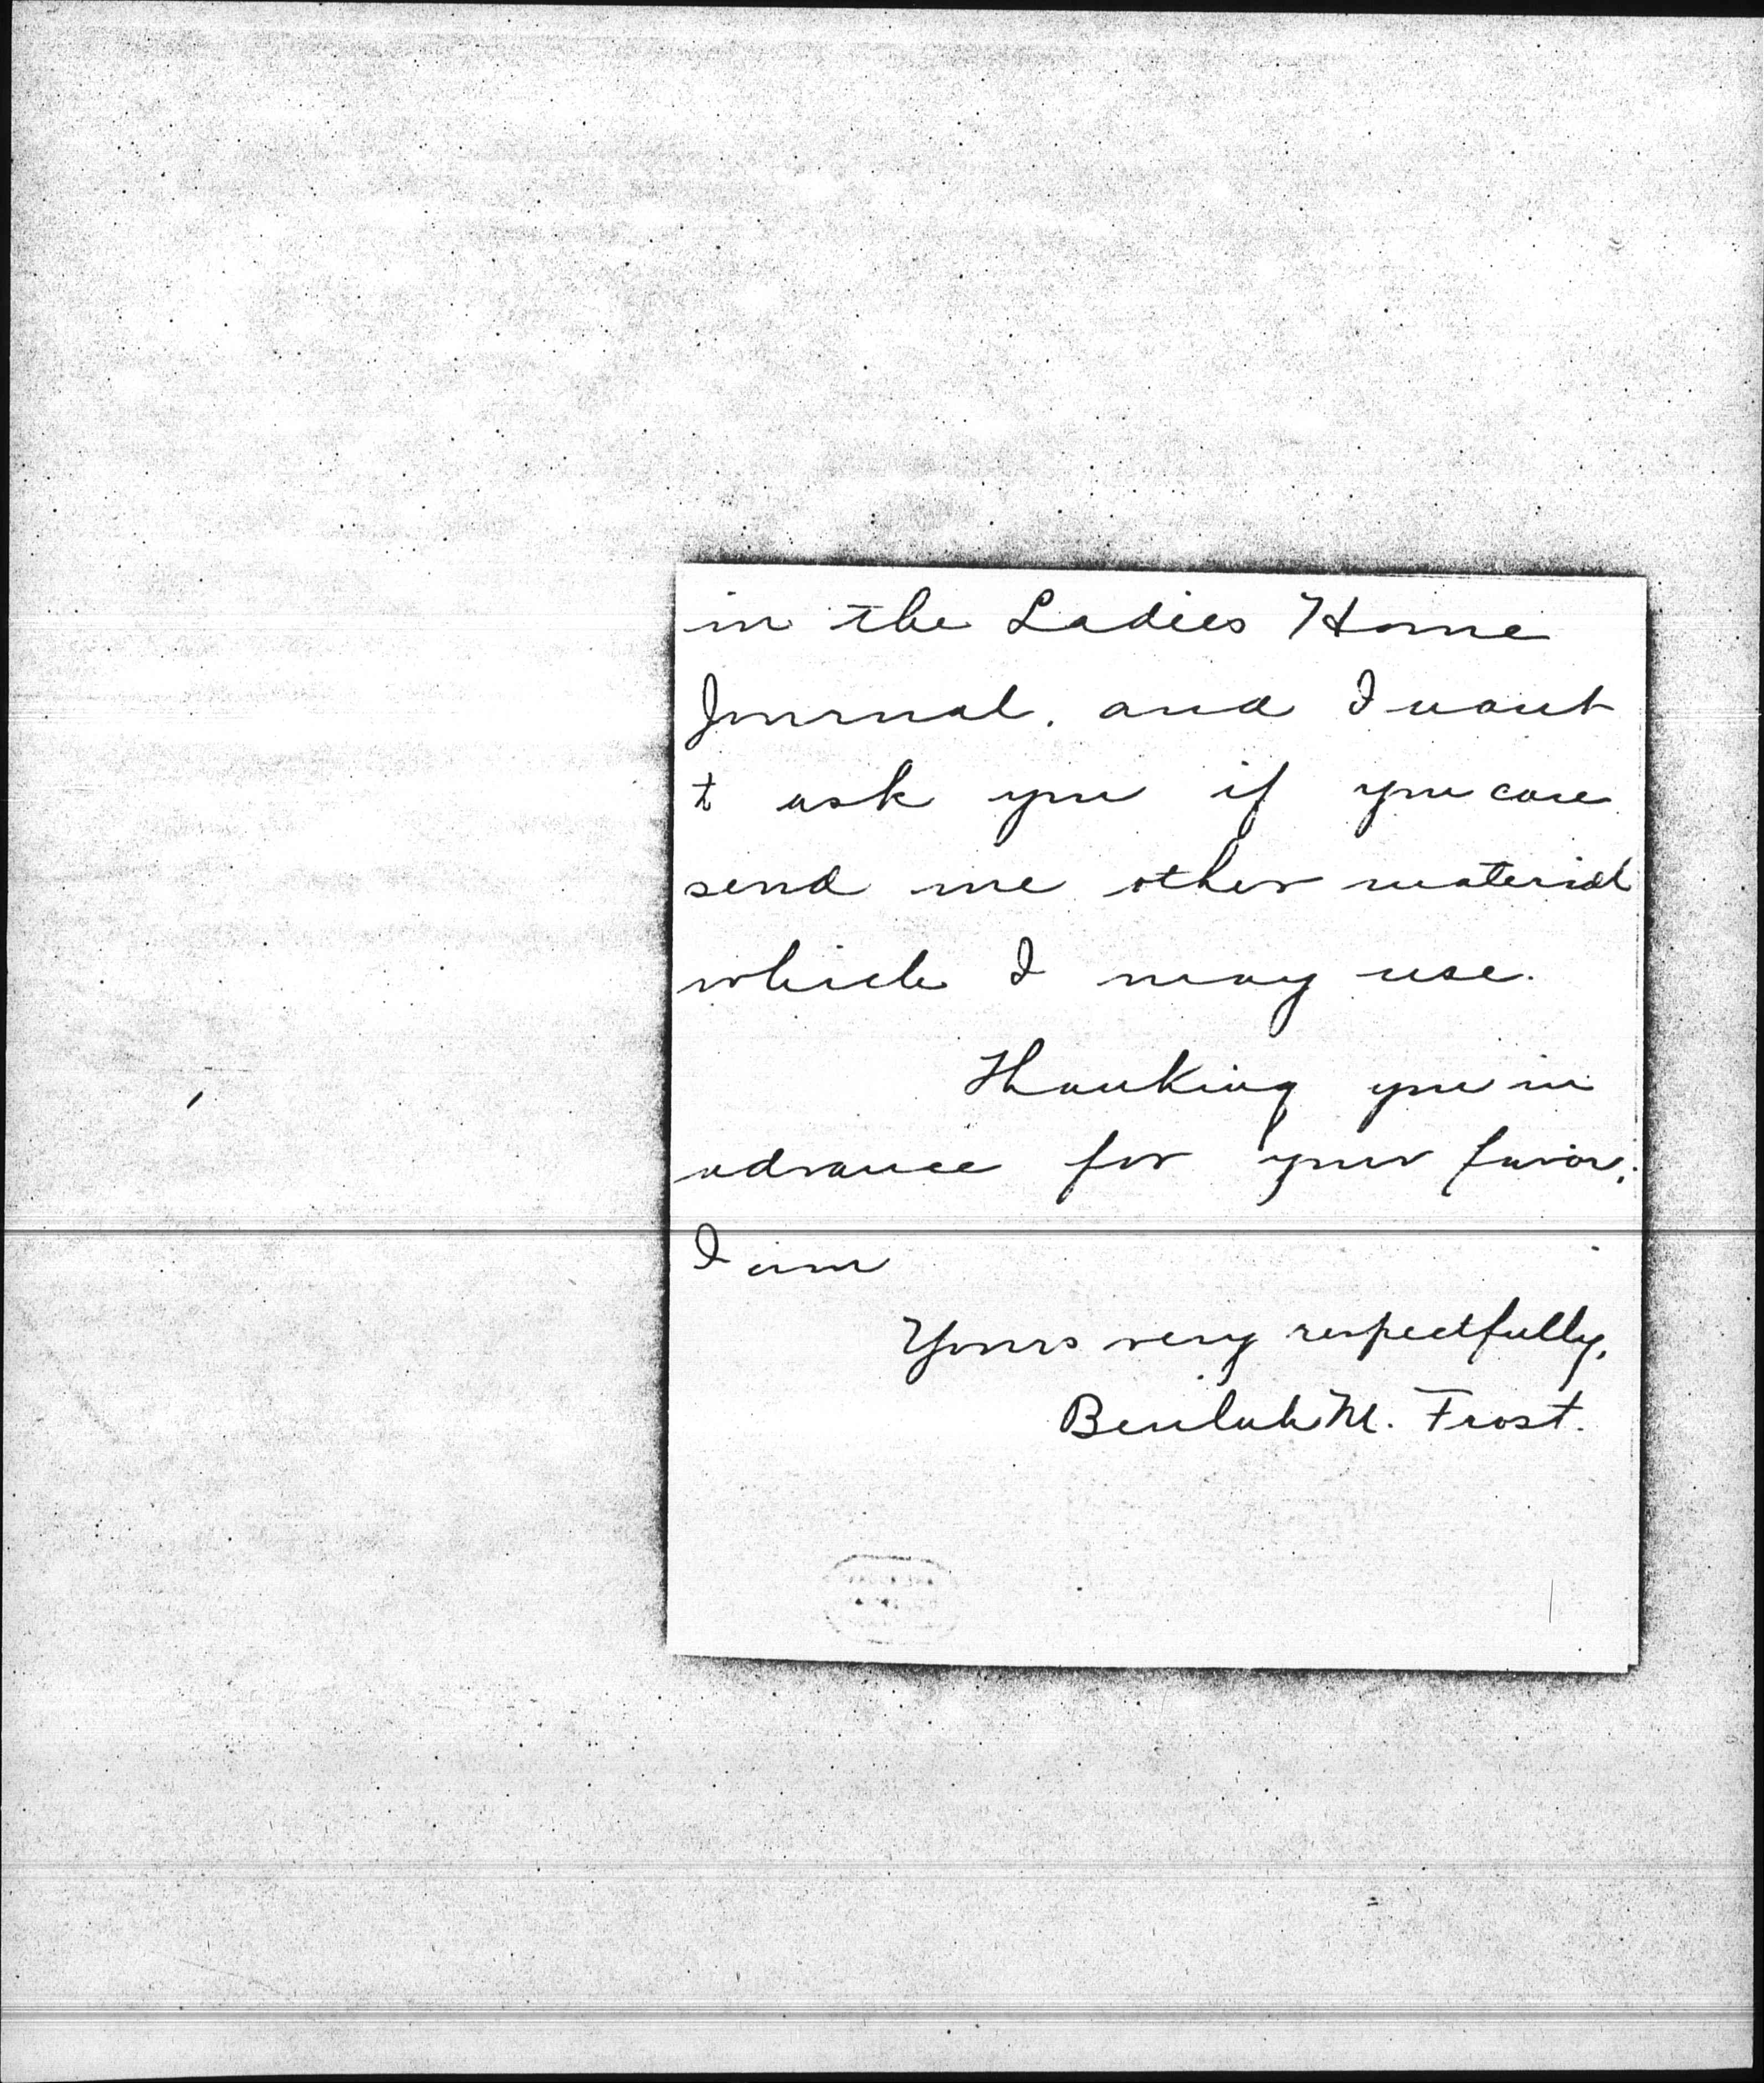 in the Ladies Home
Journal. and I want
t ask you if you can
send me other material
which I may use.
Thanking you in
advance for your favor,
I am
Yours very respectfully,
Beulah M. Frost.